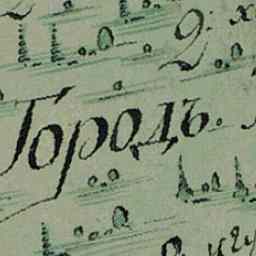 2. х
Городъ.